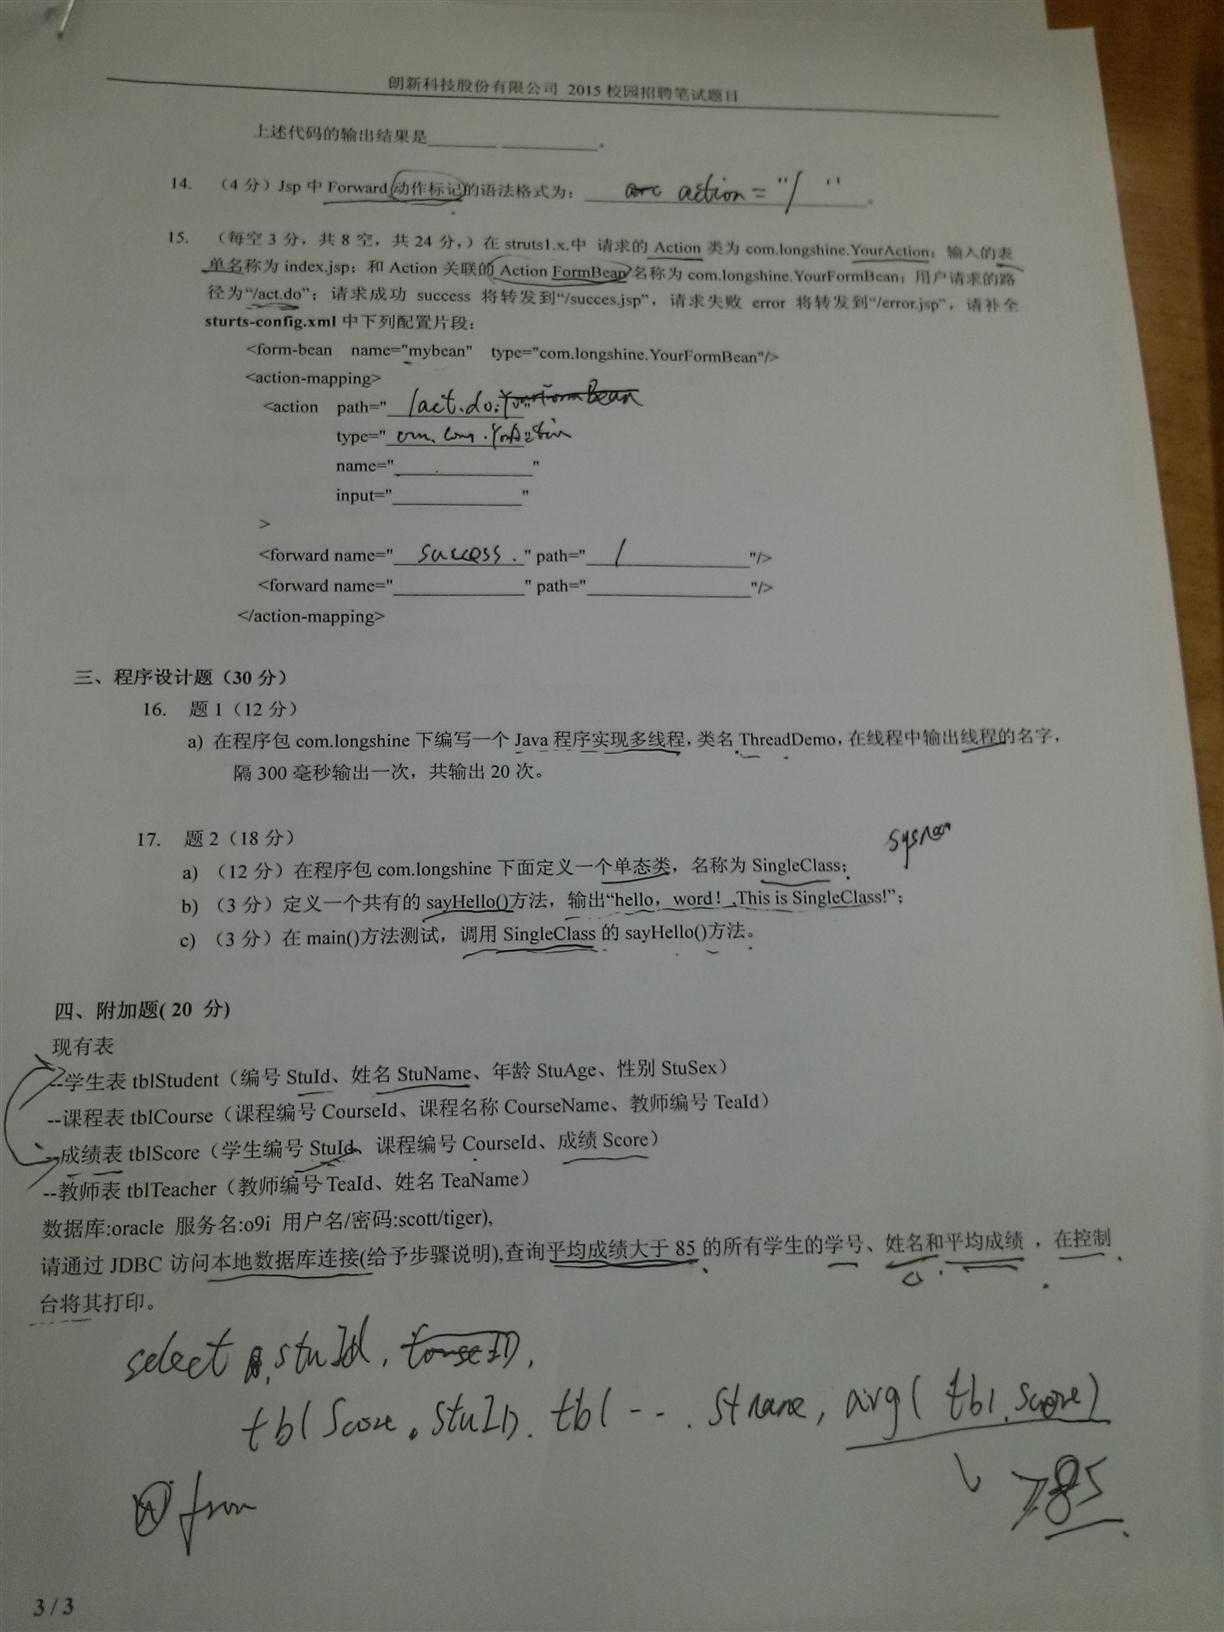 朗新科技股份有限公司 2015 校园招聘笔试题目
上述代码的输出结果是________ ________。
14. （4 分）Jsp 中 Forward 动作标记的语法格式为： action = "/ " 。
15. （每空 3 分，共 8 空，共 24 分，）在 struts1.x.中 请求的 Action 类为 com.longshine.YourAction；输入的表
单名称为 index.jsp；和 Action 关联的 Action FormBean 名称为 com.longshine.YourFormBean；用户请求的路
径为“/act.do”；请求成功 success 将转发到“/succes.jsp”，请求失败 error 将转发到“/error.jsp”，请补全
sturts-config.xml 中下列配置片段：
<form-bean name="mybean" type="com.longshine.YourFormBean"/>
<action-mapping>
<action path=" /act.do. "
type=" com. "
name="____________"
input="____________"
>
<forward name=" success . " path=" / "/>
<forward name="____________" path="____________"/>
</action-mapping>
三、程序设计题（30 分）
16. 题 1（12 分）
a) 在程序包 com.longshine 下编写一个 Java 程序实现多线程，类名 ThreadDemo，在线程中输出线程的名字，
隔 300 毫秒输出一次，共输出 20 次。
17. 题 2（18 分）
a) （12 分）在程序包 com.longshine 下面定义一个单态类，名称为 SingleClass；
b) （3 分）定义一个共有的 sayHello()方法，输出“hello，word！ This is SingleClass!”；
c) （3 分）在 main()方法测试，调用 SingleClass 的 sayHello()方法。
四、附加题( 20 分)
现有表
--学生表 tblStudent（编号 StuId、姓名 StuName、年龄 StuAge、性别 StuSex）
--课程表 tblCourse（课程编号 CourseId、课程名称 CourseName、教师编号 TeaId）
--成绩表 tblScore（学生编号 StuId、课程编号 CourseId、成绩 Score）
--教师表 tblTeacher（教师编号 TeaId、姓名 TeaName）
数据库:oracle 服务名:o9i 用户名/密码:scott/tiger),
请通过 JDBC 访问本地数据库连接(给予步骤说明),查询平均成绩大于 85 的所有学生的学号、姓名和平均成绩 ，在控制
台将其打印。
select stuId,
tblScore.StuID. tbl --. Stname, avg( tbl.score)
from
≥85
3 / 3